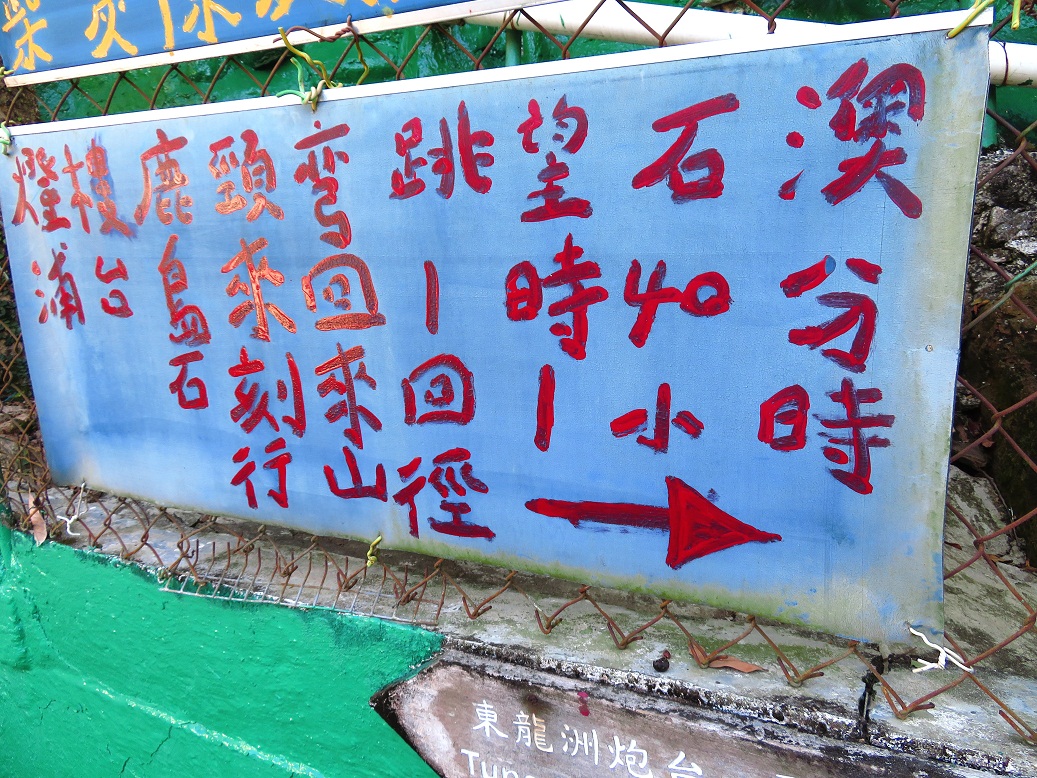 燈樓鹿頸彎跳望石澳
浦台島來回1時40分
石刻來回1小時
行山徑→
東龍洲炮台
Tung